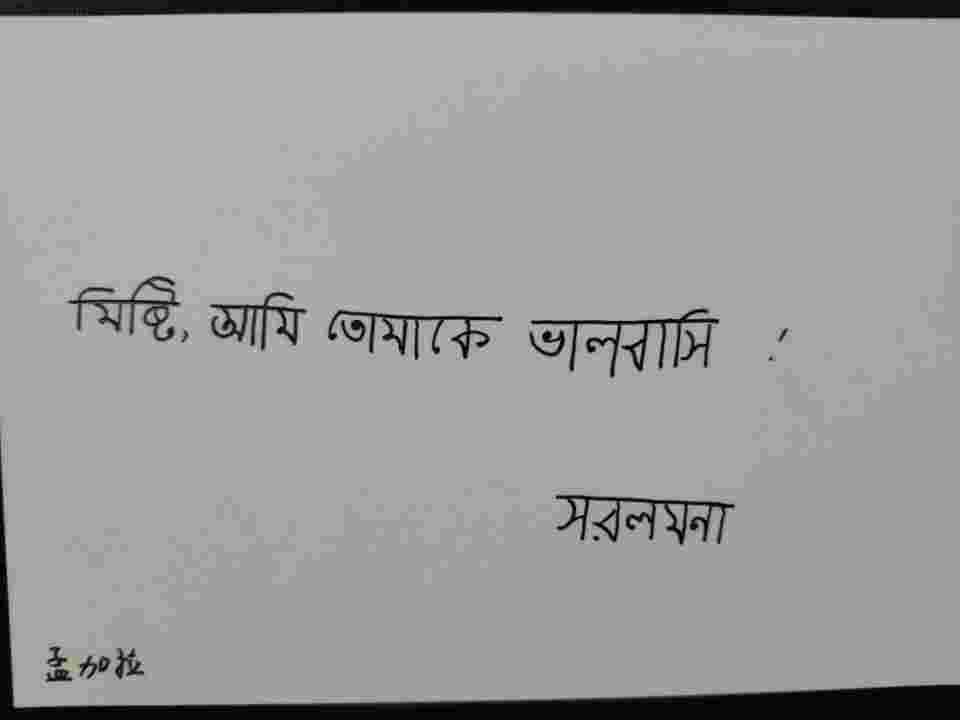 মিষ্টি, আমি তোমাকে ভালবাসি !
সরলমনা
孟加拉